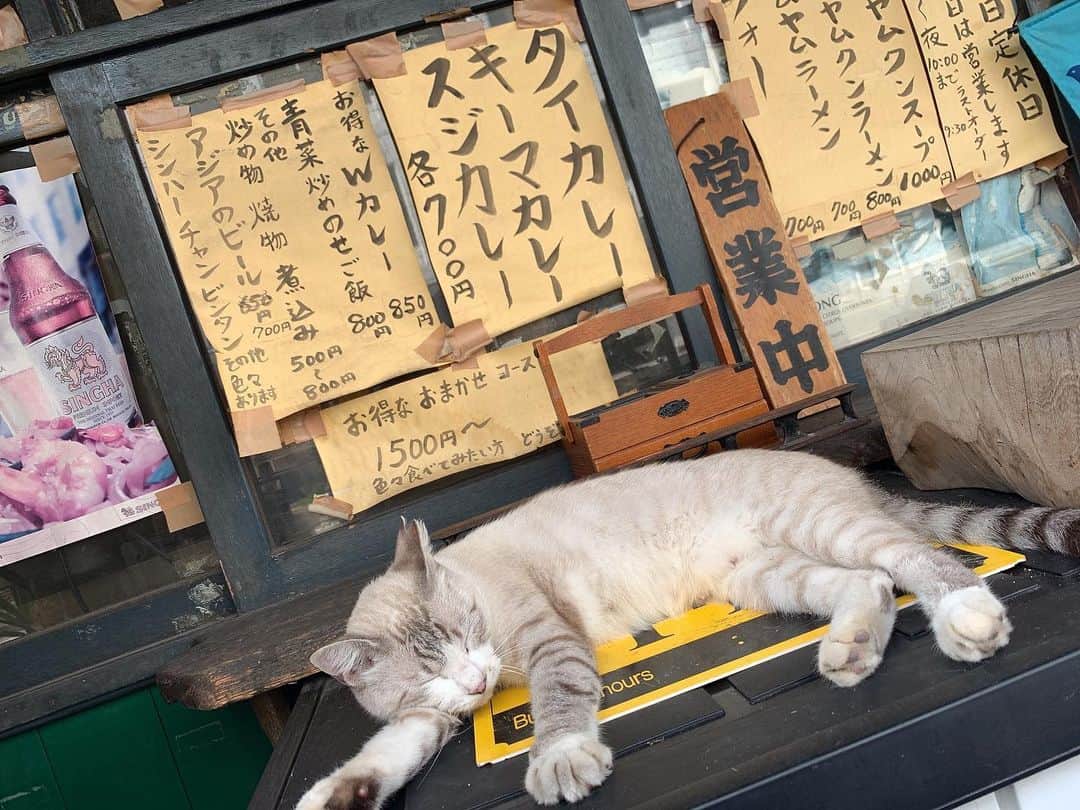 タイカレー
キーマカレー
スジカレー
各700円
お得なWカレー 850円
青菜炒めのせご飯 800円
その他
炒め物 焼物 煮込み 500円〜800円
アジアのビール 650円 700円
シンハー チャン ビンタン その他色々あります
お得な おまかせ コース
1500円〜
色々食べてみたい方
営業中
ヤムクンスープ 1000円
ヤムクンラーメン 800円
ヤムラーメン 700円
700円
定休日
日は営業します
夜10:00まで ラストオーダー9:30
SINGHA
SINGHA
hours